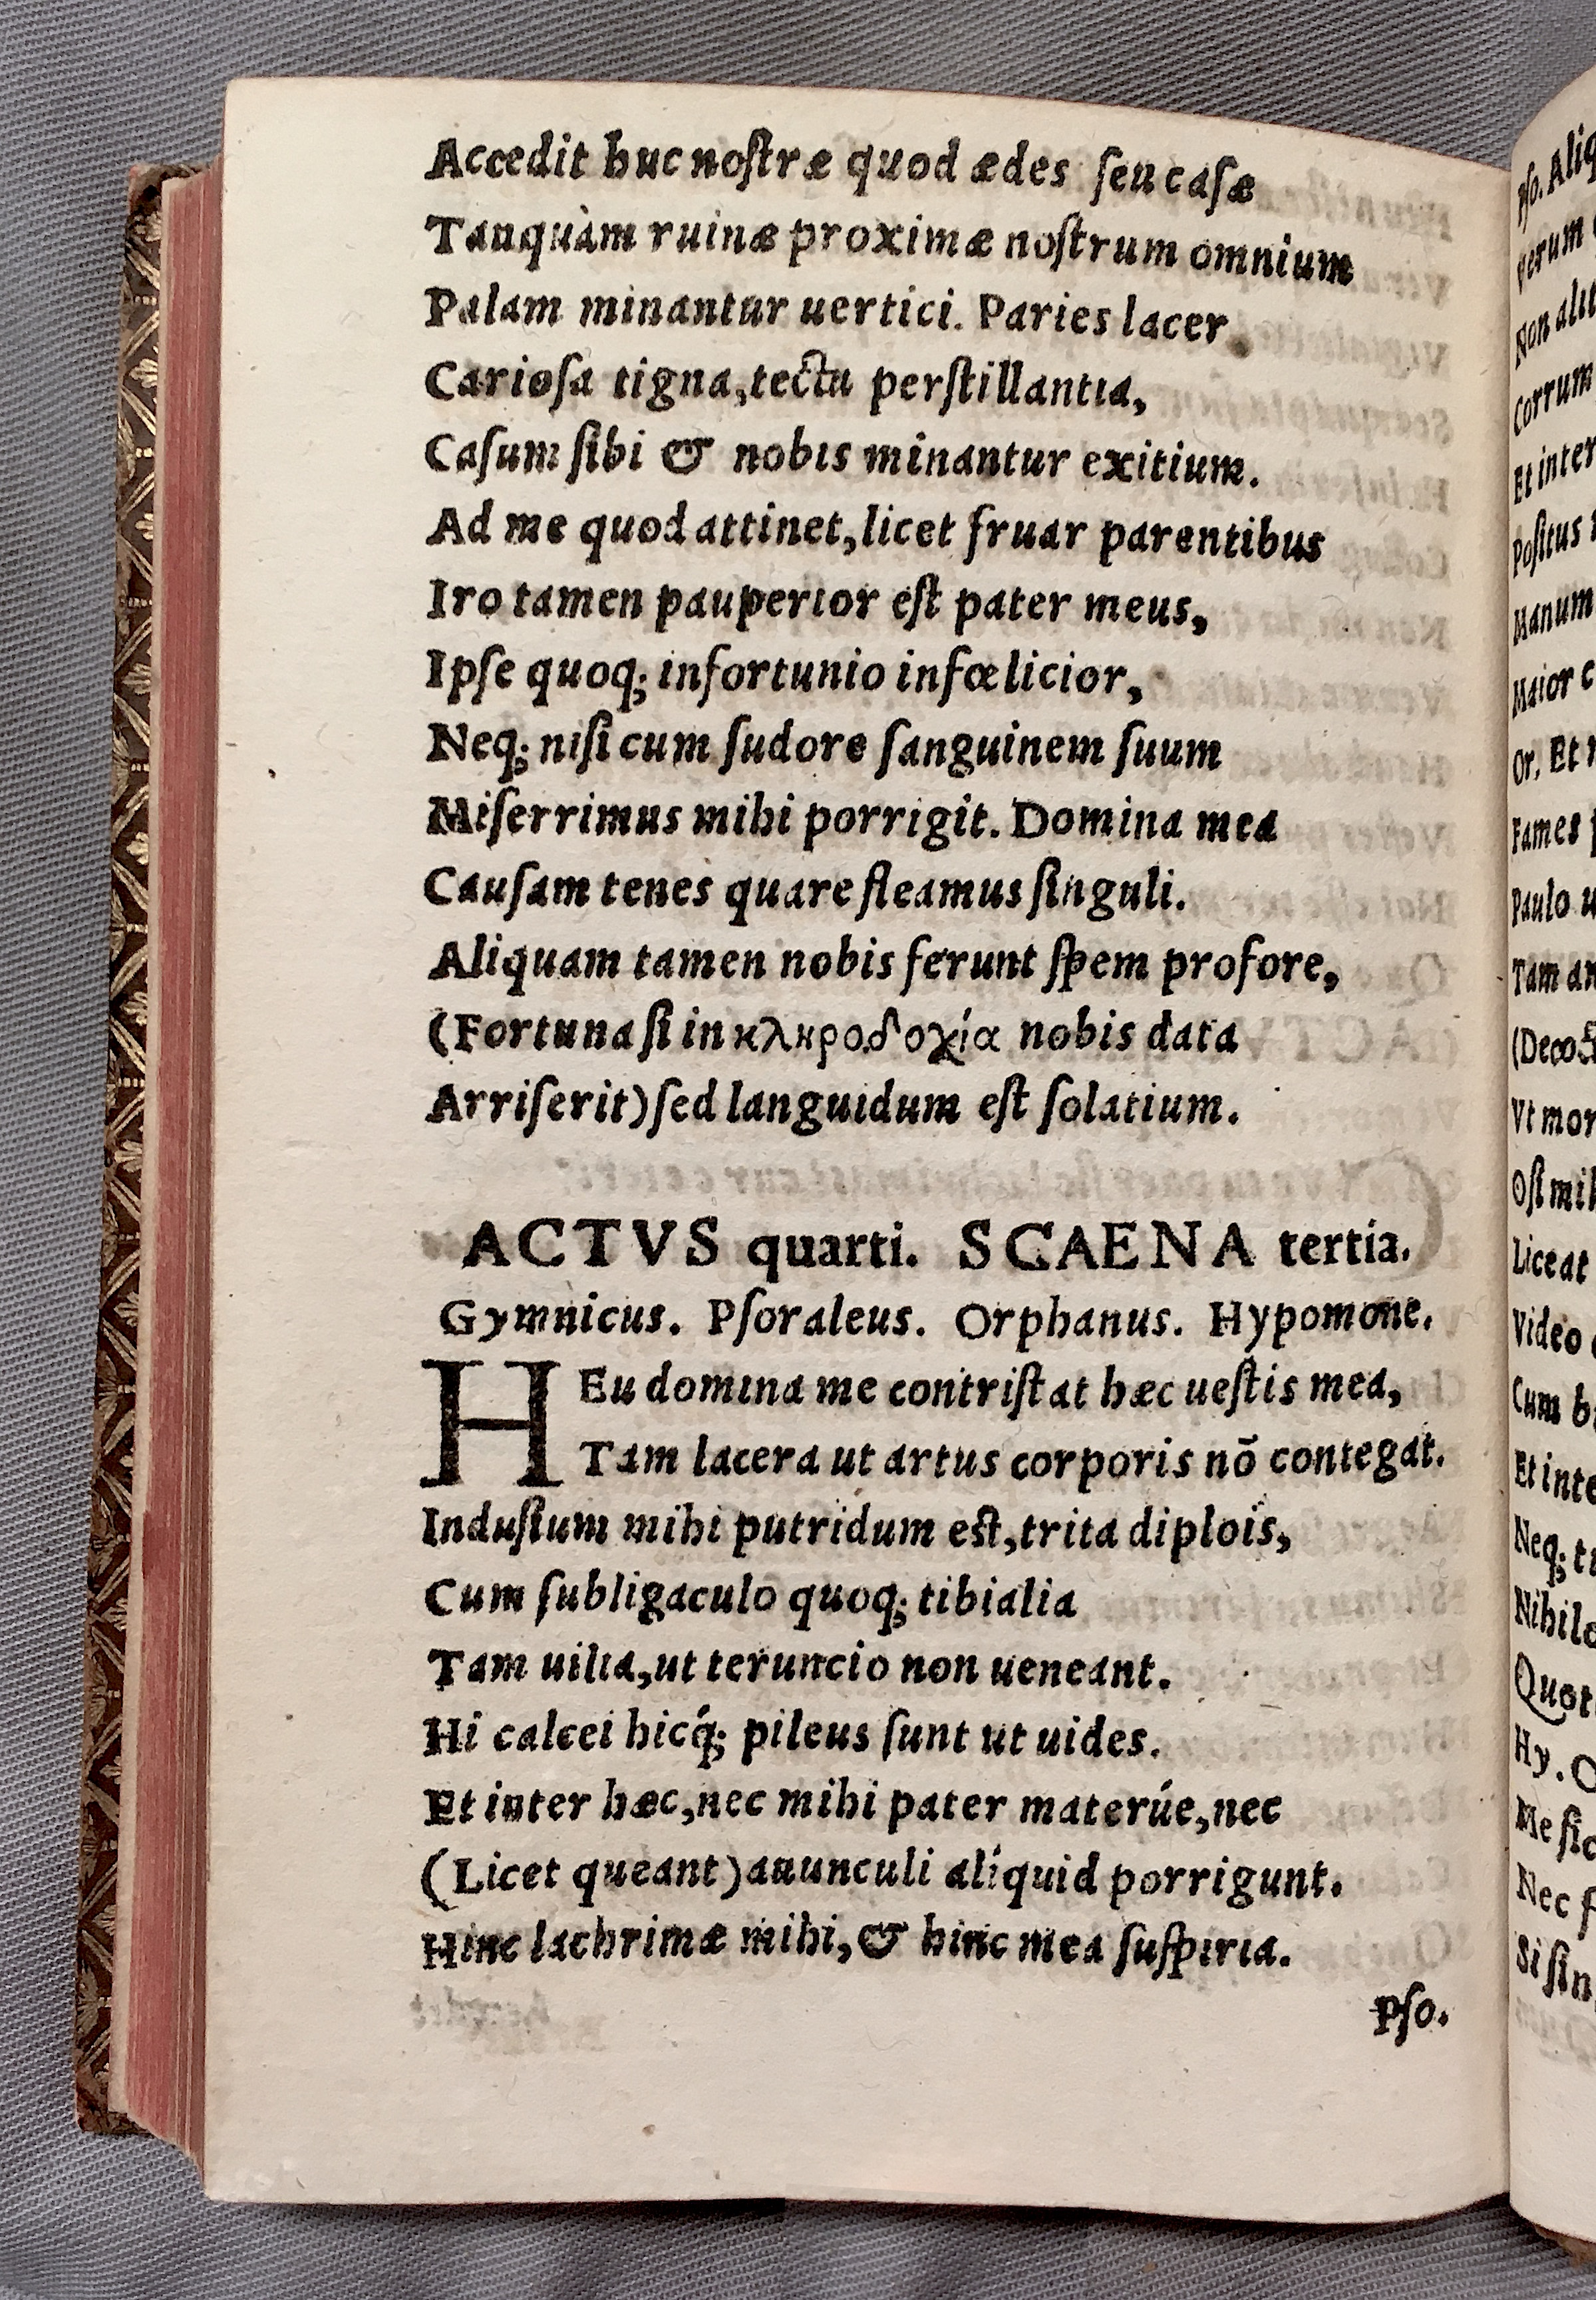 Accedit huc nostræ quod ædes ſeu caſæ
Tanquàm ruinæ proximæ nostrum omnium
Palam minantur uertici. Paries lacer
Carioſa tigna, tecta perstillantia,
Caſum ſibi & nobis minantur exitium.
Ad me quod attinet, licet fruar parentibus
Iro tamen pauperior est pater meus,
Ipſe quoq; infortunio infœlicior,
Neq; niſi cum ſudore ſanguinem ſuum
Miſerrimus mihi porrigit. Domina mea
Cauſam tenes quare fleamus ſinguli.
Aliquam tamen nobis ferunt ſpem profore,
(Fortuna ſi in κληροδοχία nobis data
Arriſerit) ſed languidum est ſolatium.
ACTVS quarti. SCAENA tertia.
Gymnicus. Pſoraleus. Orphanus. Hypomone.
HEu domina me contristat hæc uestis mea,
Tam lacera ut artus corporis nō contegat.
Induſium mihi putridum est, trita diplois,
Cum ſubligaculo quoq; tibialia
Tam uilia, ut teruncio non ueneant.
Hi calcei hicq́; pileus ſunt ut uides.
Et inter hæc, nec mihi pater materúe, nec
(Licet queant) auunculi alíquid porrigunt.
Hinc lachrimæ mihi, & hinc mea ſuſpiria.
Pſo.
pſo.
Non
Et inter
Poſitus
Maior
Or. Et
Fames
Paulo
Tam
Vt
Liceat
Video
Cum
Neq;
Hy.
Me
Nec